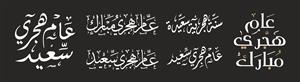 عام
هجري
مبارك
سنة هجرية سعيدة
عام هجري سعيد
عام هجري مبارك
عام هجري سعيد
عام هجري
سعيد